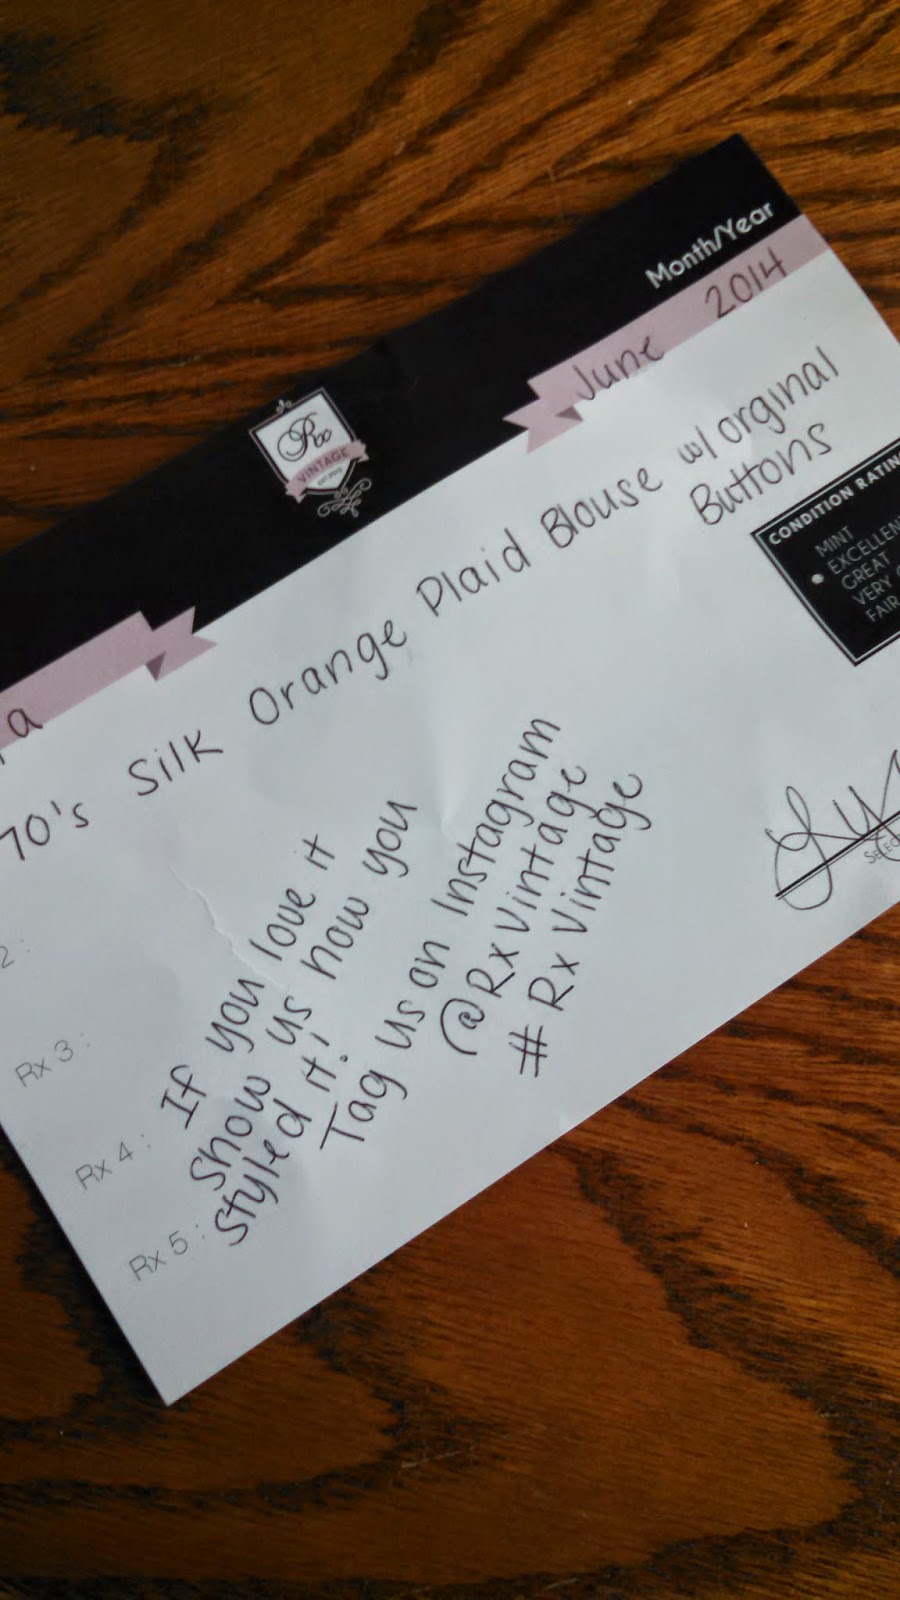 Month/Year
June 2014
Rx
VINTAGE
EST 2013
70's Silk Orange Plaid Blouse w/ orginal
Buttons
CONDITION RATIN
MINT
EXCELLENT
GREAT
VERY G
FAIR
2 :
Rx 3 :
Rx 4 :
Rx 5 :
If you love it
Show us how you
Styled it!
Tag us on Instagram
@Rx Vintage
# Rx Vintage
SELEC